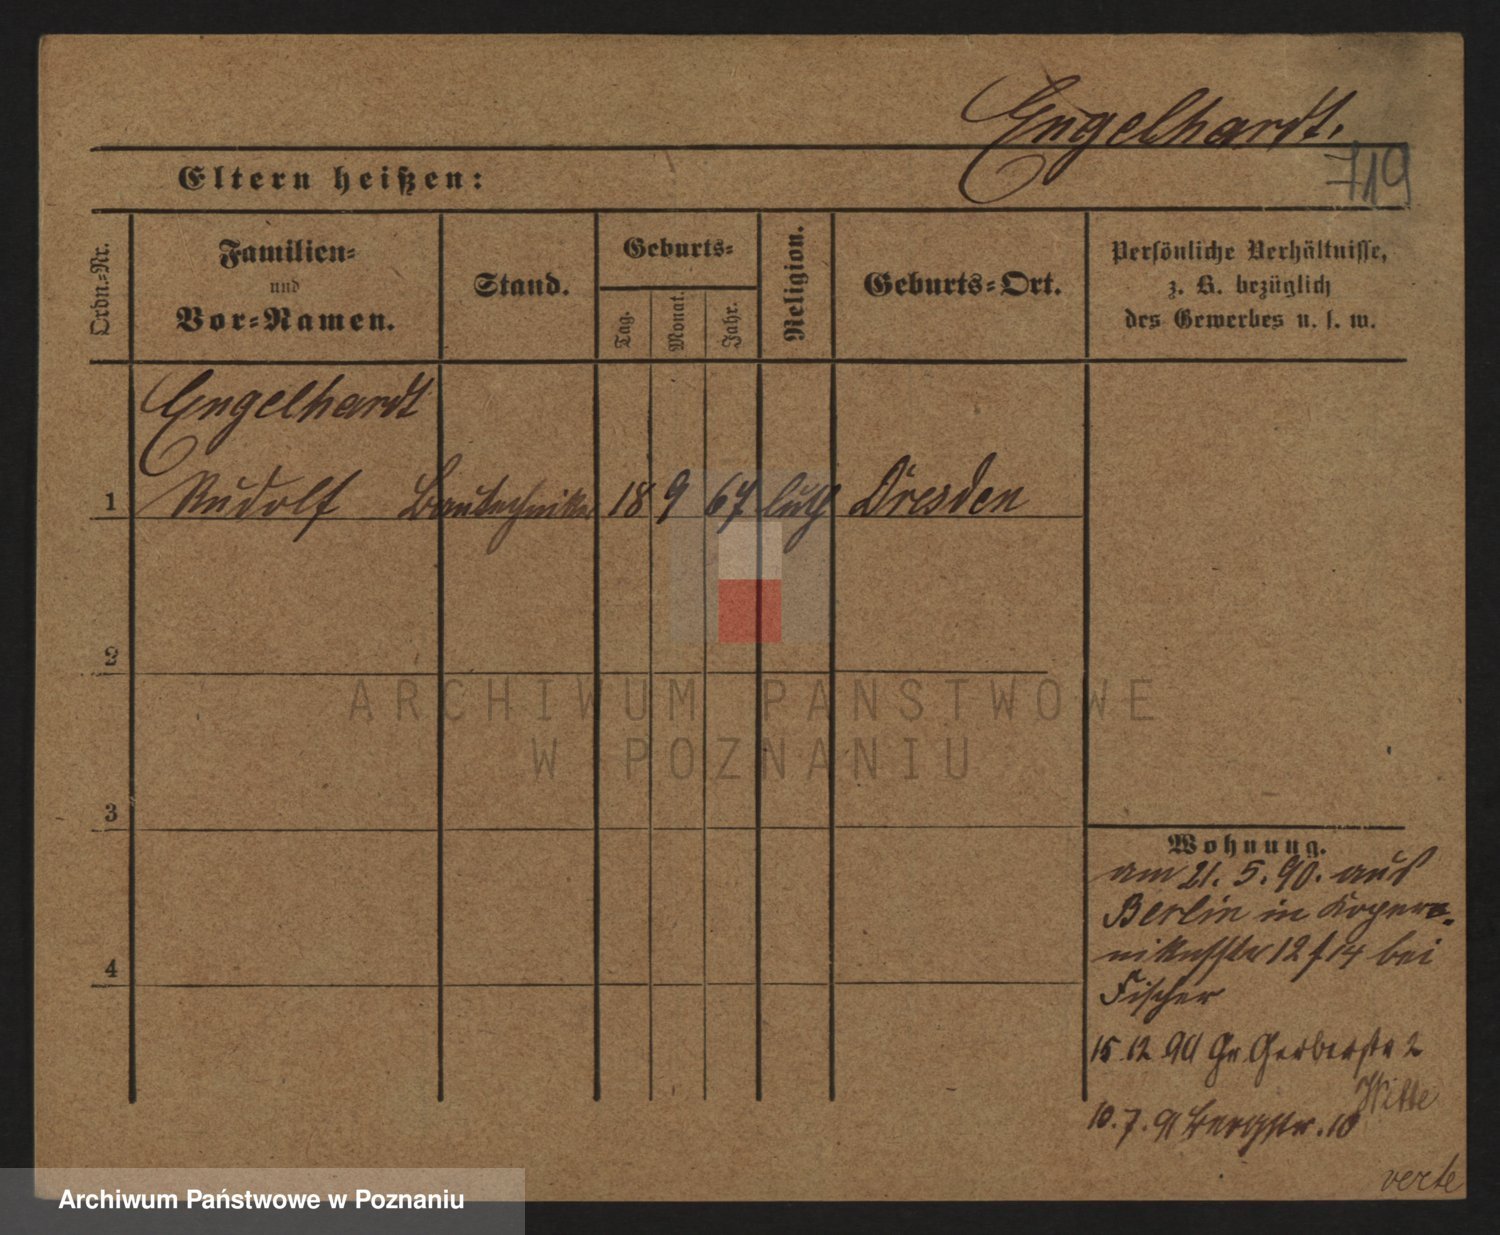 Engelhardt.
719
Eltern heißen:
Ordn.-Nr.
Familien-
und
Vor-Namen.
Stand.
Geburts-
Tag.
Monat.
Jahr.
Religion.
Geburts-Ort.
Persönliche Verhältnisse,
z. B. bezüglich
des Gewerbes u. s. w.
Engelhardt
1 Rudolf Bautechniker 18 9 67 luth Dresden
2
ARCHIWUM PAŃSTWOWE
W POZNANIU
3
4
Wohnung.
am 21. 5. 90. aus
Berlin in Koper-
nikusstr 12 f 14 bei
Fischer
15.12 90 Gr Gerberstr 2
Witte
10.7.91 Bergstr. 10
verte
Archiwum Państwowe w Poznaniu